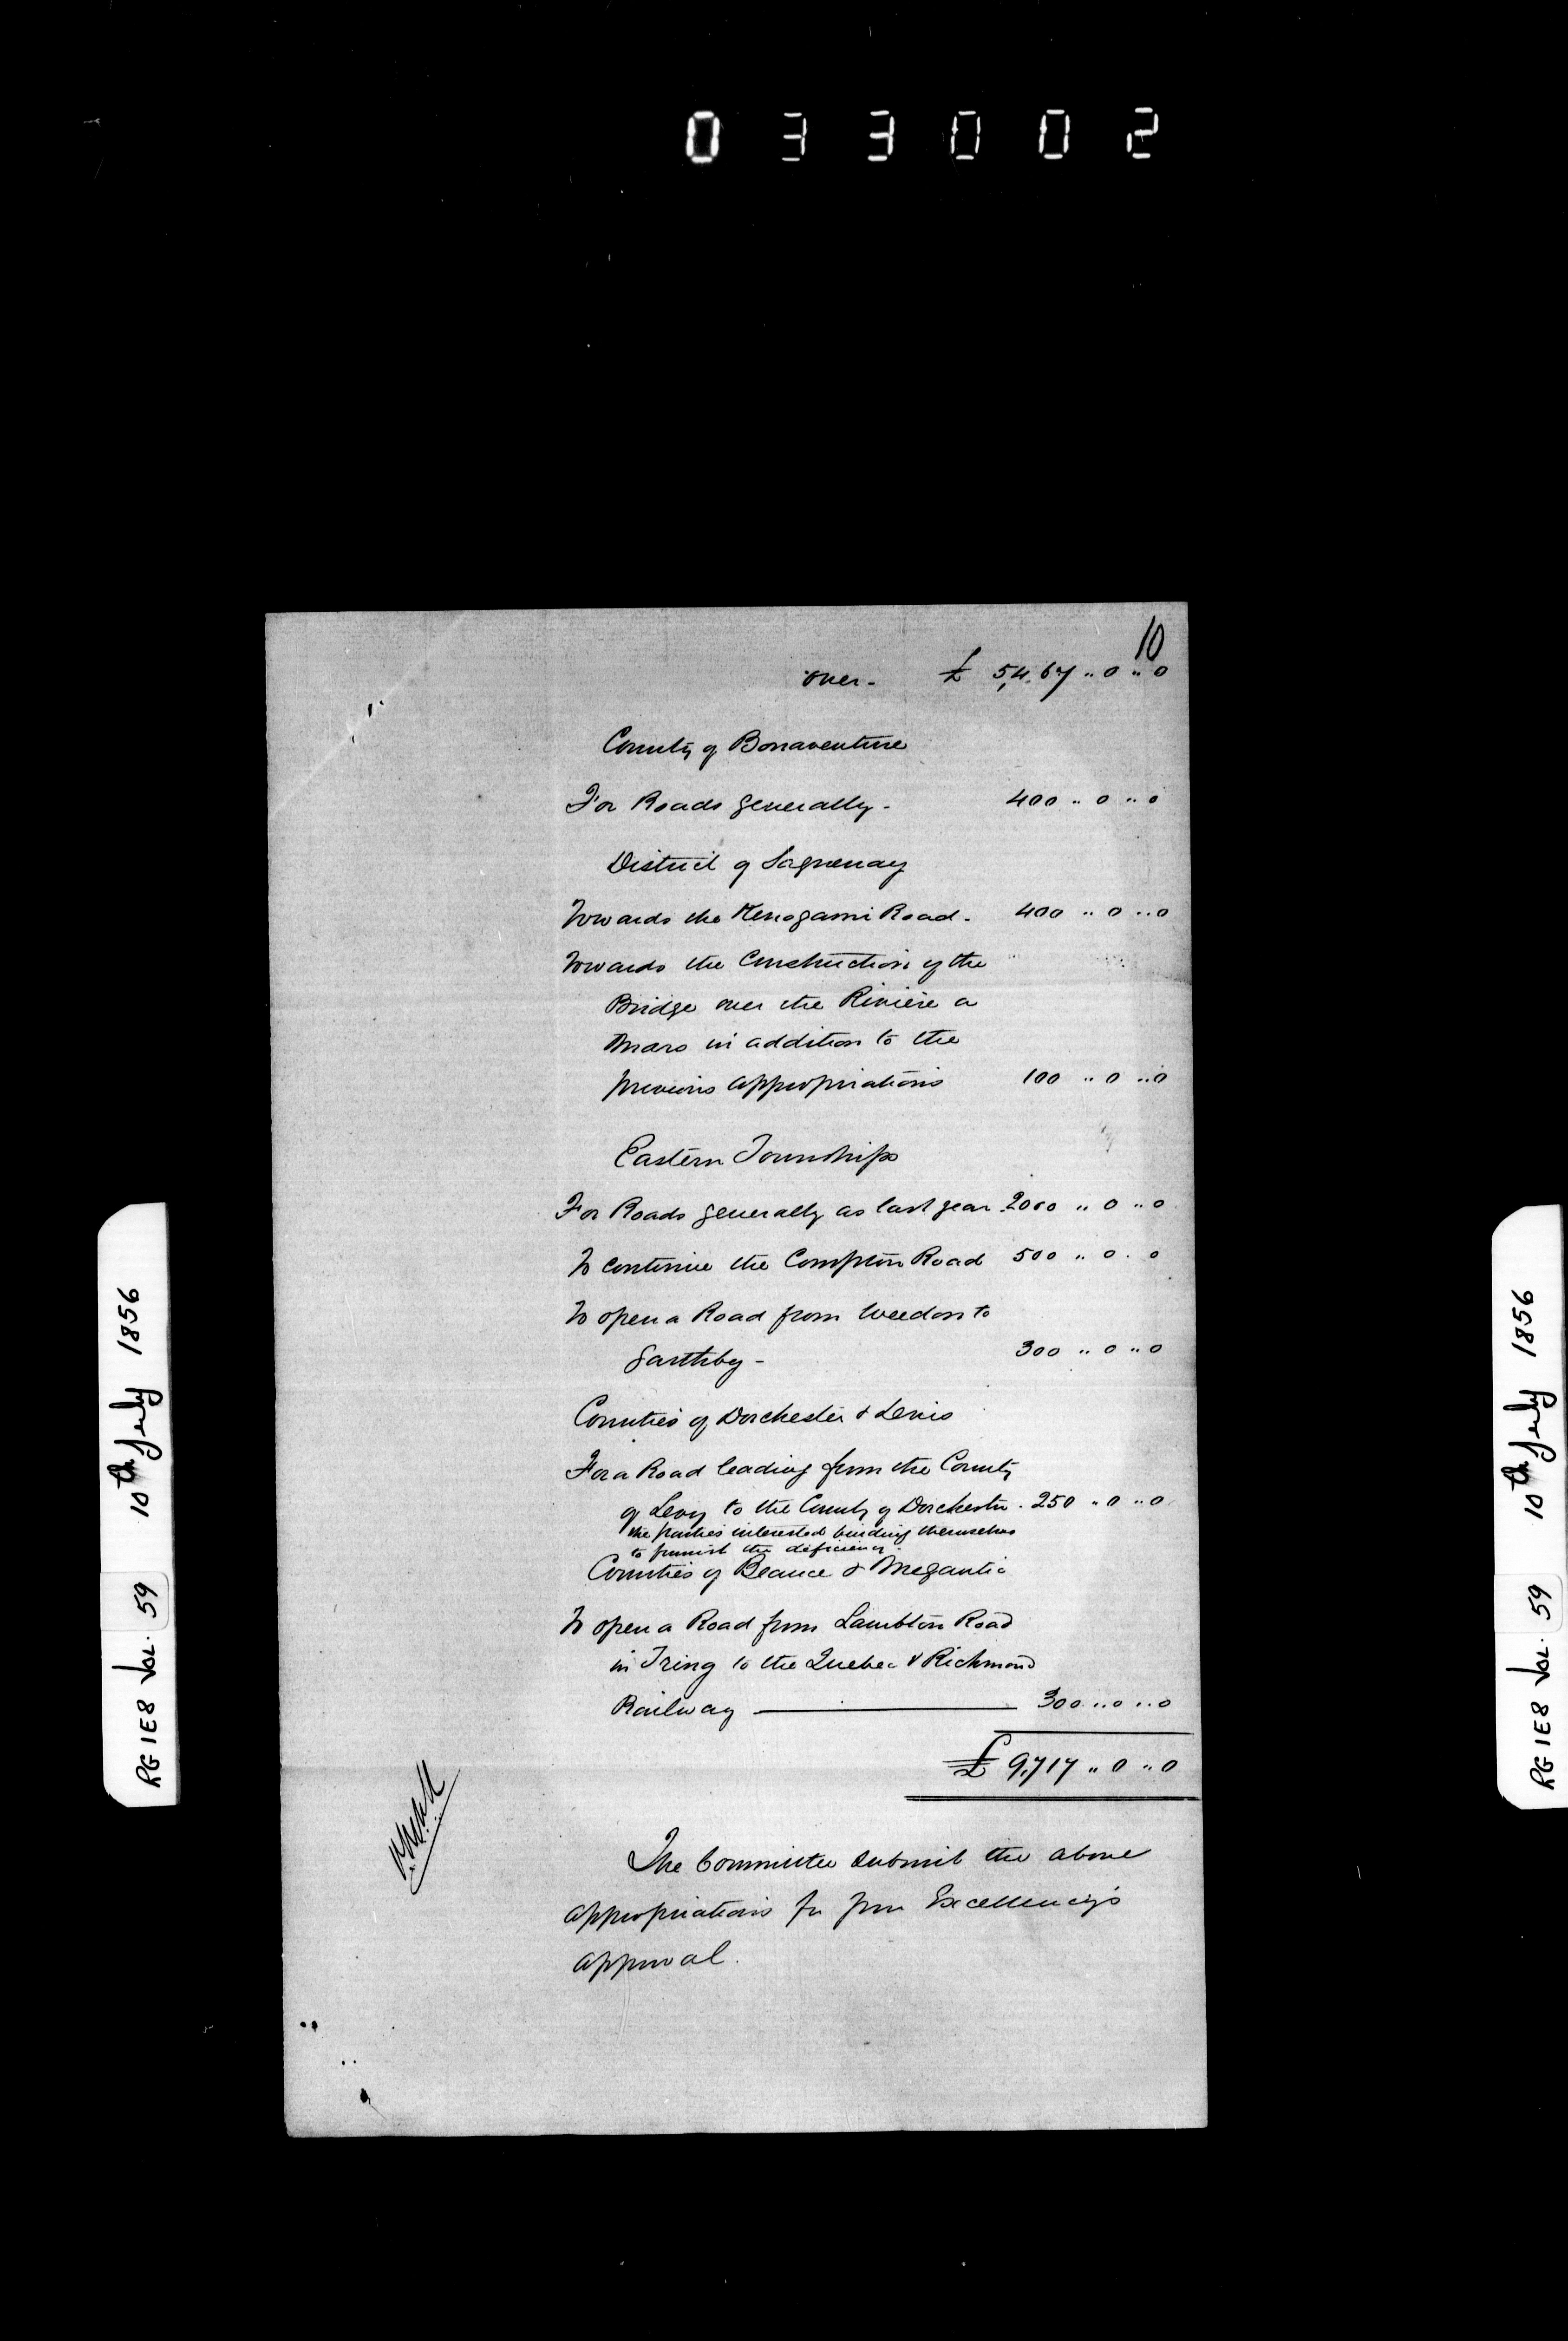 0 3 3 0 0 2
10
over - £ 5,467 .. 0 .. 0
County of Bonaventure
For Roads generally - 400 .. 0 .. 0
District of Saguenay
Towards the Kenogami Road - 400 .. 0 .. 0
Towards the Construction of the
Bridge over the Rivière a
Mars in addition to the
previous appropriations 100 .. 0 .. 0
Eastern Townships
For Roads generally as last year 2000 .. 0 .. 0
To continue the Compton Road 500 .. 0 . 0
To open a Road from Weedon to
Garthby - 300 .. 0 .. 0
Counties of Dorchester & Levis
For a Road leading from the County
of Levy to the County of Dorchester . 250 .. 0 .. 0
the parties interested binding themselves
to furnish the deficiency.
Counties of Beauce & Megantic
To open a Road from Lambton Road
in Tring to the Quebec & Richmond
Railway 300 .. 0 .. 0
£ 9,717 .. 0 .. 0
The Committee submit the above
appropriations for your Excellency's
approval.
RG 1E8 Vol. 59 10th July 1856
RG 1E8 Vol. 59 10th July 1856